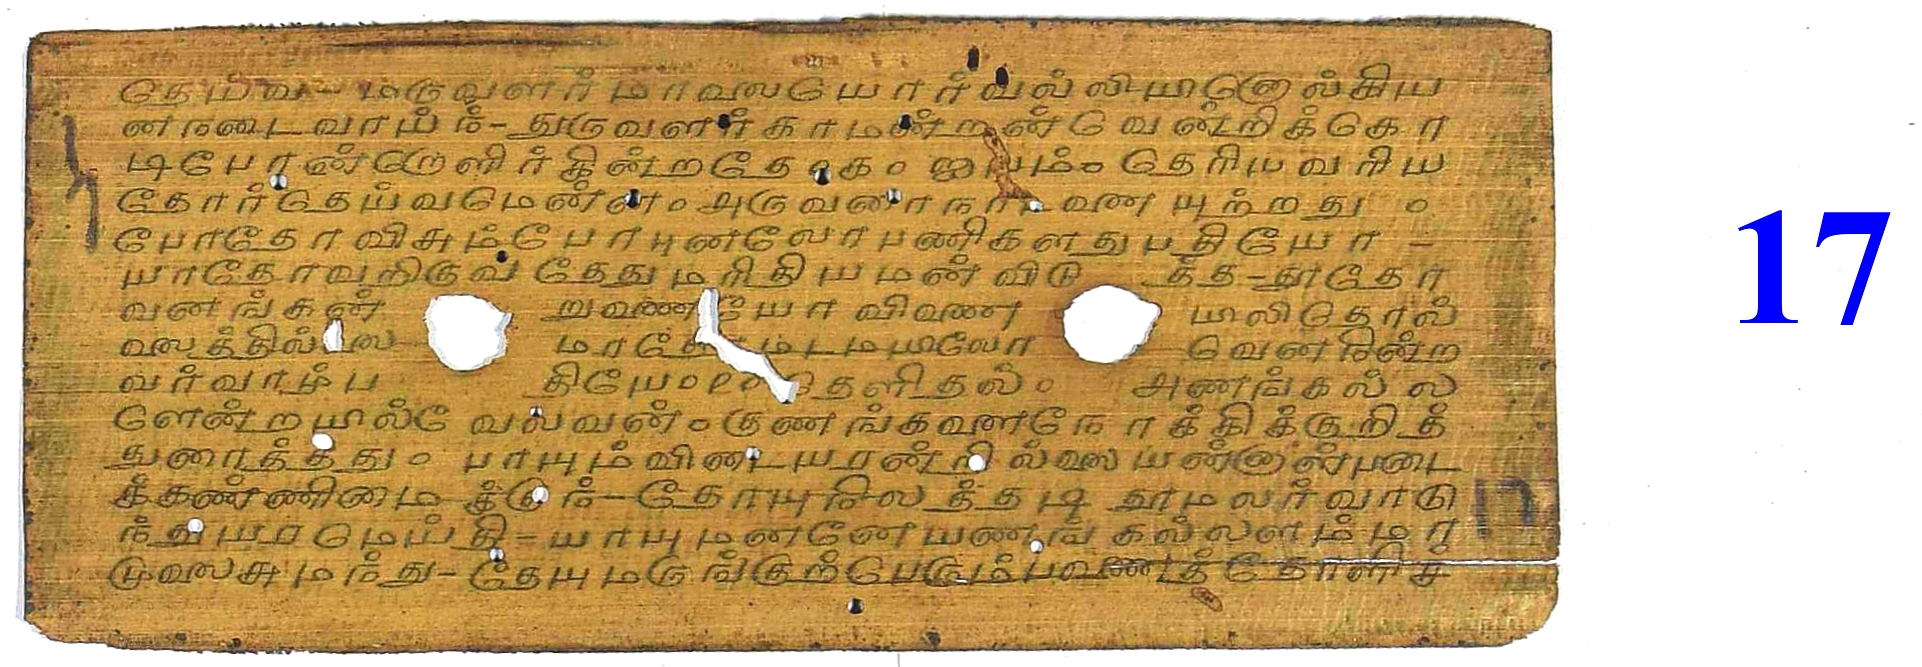 தெய்வ- மருவளர்மாலையோர்வல்லியினொல்கிய
னநடைவாய்ந்-துருவளர்காமன்றன்வென்றிக்கொ
டிபோன்றொளிர்கின்றதே௧௦ ஐயம்௦ தெரியவரிய
தோர்தெய்வமென்ன௦ அருவரைநாடனையுற்றது ௦
போதோவிசும்போபுனலோபணிகளதுபதியோ -
யாதோவறிகுவதேதுமரிதியமன்விடு த்த-தூதோ
வனங்கன் றுணையோவிணை யிலிதொல்
லைத்தில்லை மாதோமடமயிலோ வெனநின்ற
வர்வாழ்ப தியே௦௨௦தெளிதல்௦ அணங்கல்ல
ளென்றயில்வேலவன்௦குணங்களைநோக்கிக்குறித்
துரைத்தது௦ பாயும்விடையரன்றில்லையன்னாள்படை
க்கண்ணிமைக்குந்-தோயுநிலத்தடி தூமலர்வாடு
ந்துயரமெய்தி-யாயுமனனேயணங்கல்லளம்மா
முலைசுமந்து-தேயுமருங்குற்பெரும்பணைத்தோளிச
17